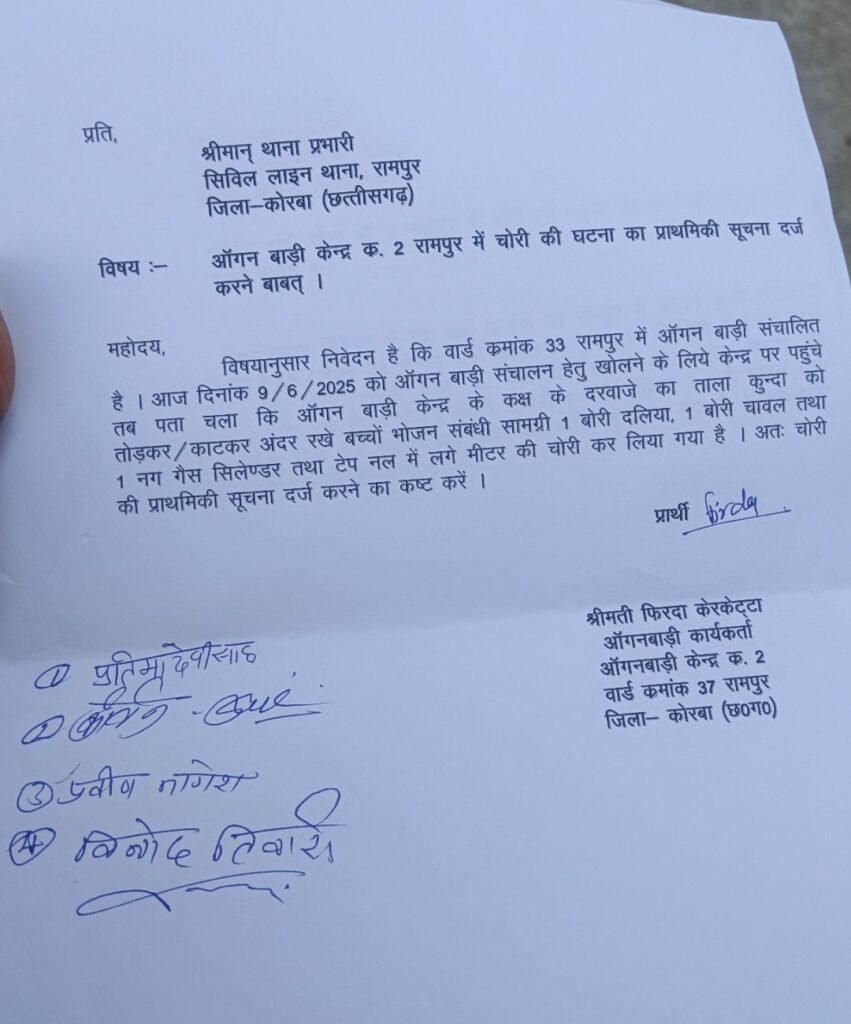 प्रति,
श्रीमान् थाना प्रभारी
सिविल लाइन थाना, रामपुर
जिला–कोरबा (छत्तीसगढ़)
विषय :– ऑगन बाड़ी केन्द्र क. 2 रामपुर में चोरी की घटना का प्राथमिकी सूचना दर्ज
करने बाबत् ।
महोदय,
विषयानुसार निवेदन है कि वार्ड कमांक 33 रामपुर में ऑगन बाड़ी संचालित
है । आज दिनांक 9/6/2025 को ऑगन बाड़ी संचालन हेतु खोलने के लिये केन्द्र पर पहुंचे
तब पता चला कि ऑगन बाड़ी केन्द्र के कक्ष के दरवाजे का ताला कुन्दा को
तोड़कर/काटकर अंदर रखे बच्चों भोजन संबंधी सामग्री 1 बोरी दलिया, 1 बोरी चावल तथा
1 नग गैस सिलेण्डर तथा टेप नल में लगे मीटर की चोरी कर लिया गया है । अतः चोरी
की प्राथमिकी सूचना दर्ज करने का कष्ट करें ।
प्रार्थी
श्रीमती फिरदा केरकेट्टा
ऑगनबाड़ी कार्यकर्ता
ऑगनबाड़ी केन्द्र क. 2
वार्ड कमांक 37 रामपुर
जिला– कोरबा (छ0ग0)
① प्रतिमा देवी साह
②
③ प्रवीण नागेश
④ विनोद तिवारी